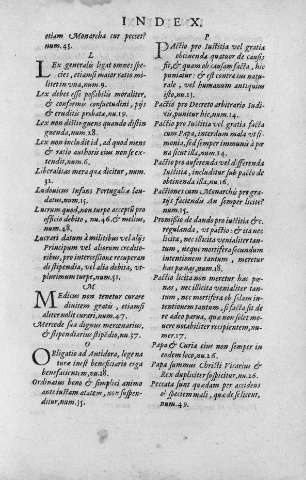 INDEX.
etiam Monarcha cur peccet?
num.45.
L
LEx generalis ligat omnes species, etiamsi maior ratio militet in vna, num.9.
Lex debet esse possibilis moraliter,
& conformis consuetudini, piis
& eruditis probata, nu.19.
Lex non distinguens quando distinguenda, num.28.
Lex non includit id, ad quod mens
& ratio authoris eius non se extendit, num.6.
Liberalitas mera qua dicitur, num.
32.
Ludouicus Infans Portugaliæ laudatus, num.15.
Lucrum quod, non turpe accepti pro
officio debito, nu.46 & melius,
num.48.
Lucrari datum à militibus vel alijs
Principum vel aliorum creditoribus, pro intercessione recuperandi stipendia, vel alia debita, vt
plurimum turpe, num.51.
M
MEdicus non tenetur curare
diuitem gratis, etiamsi
aliter nollit curari, num.47.
Mercede sua dignus mercenarius,
& stipendiarius stipēdio, nu.37.
O
OBligatio ad Antidora, lege natura inest beneficiario erga
benefacientem, nu.28.
Ordinatus bono & simplici animo
ante iustam ætatem, non suspenditur, num.35.
P
PActio pro Iustitia vel gratia
obtinenda quatuor de causis
fit, & quam ob causam facta, hic
puniatur: & est contra ius naturale, vel humanum antiquum
ista, nu.21.
Pactio pro Decreto arbitrario Iudicis, punitur hic, num.14.
Pactio pro Iustitia vel gratia facta
cum Papa, interdum mala vt simonia, sed semper immunis à pœna licet illa, num.14.
Pactio pro auferenda vel differenda
Iustitia, includitur sub pacto de
obtinenda illa, nu.16.
Pactiones cum Monarchis pro gratijs faciendis an semper licitæ?
num.15.
Promissio de dando pro iustitia &c.
regulanda, vt pactio: & ita nec
licita, nec illicita venialiter tantum, neque mortifera secundum
intentionem tantum, meretur
has pœnas, num.18.
Pactio licita non meretur has pœnas, nec illicita venialiter tantum, nec mortifera ob solam intentionem tantum, si facta sit de
re adeo parua, quæ non solet mouere notabiliter recipientem, numer.27.
Papa & Curia eius non semper in
eodem loco, nu.26.
Papa summus Christi Vicarius &
Rex dupliciter suspicitur, nu.26.
Peccata sunt quædam per accidens
& speciem mali, quæ de se licent,
num.49.